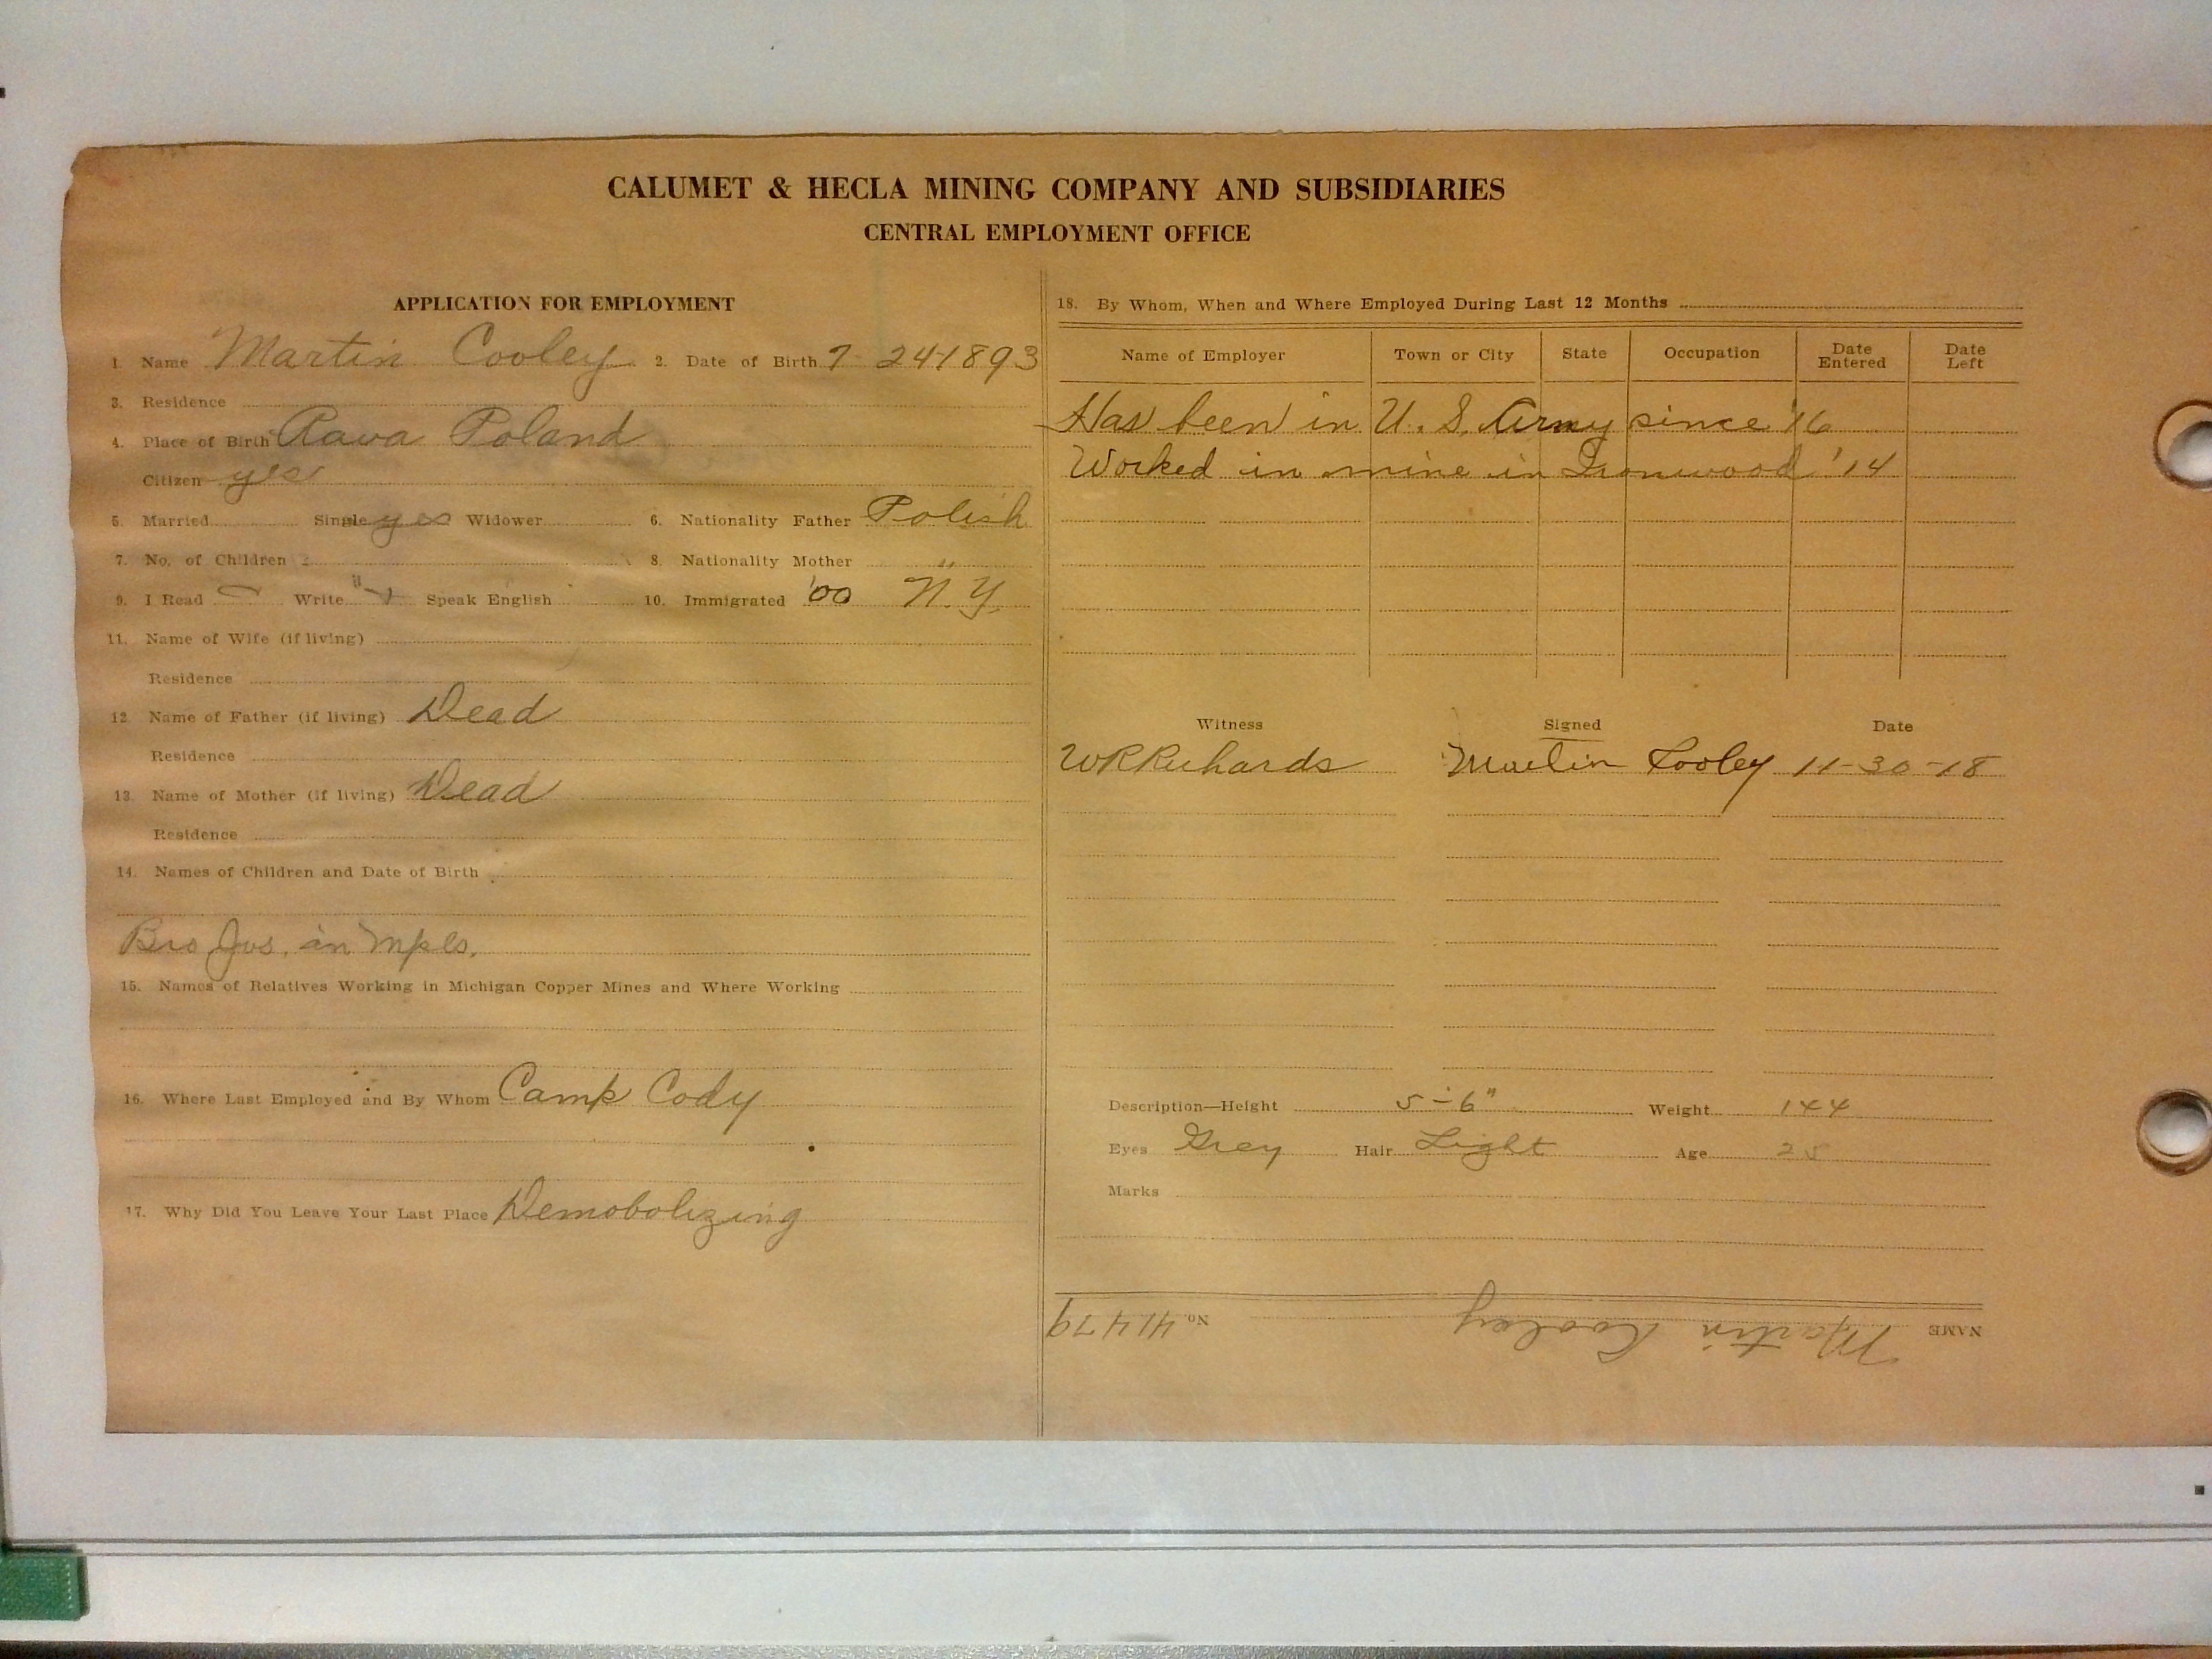 CALUMET & HECLA MINING COMPANY AND SUBSIDIARIES
CENTRAL EMPLOYMENT OFFICE
APPLICATION FOR EMPLOYMENT
1. Name Martin Cooley 2. Date of Birth 7 24-1893
3. Residence
4. Place of Birth Rawa Poland
Citizen yes
5. Married Single yes Widower 6. Nationality Father Polish
7. No. of Children 8. Nationality Mother "
9. I Read Write " Speak English 10. Immigrated '00 N.Y.
11. Name of Wife (if living)
Residence
12. Name of Father (if living) Dead
Residence
13. Name of Mother (if living) Dead
Residence
14. Names of Children and Date of Birth
Bro Jos. in Mpls.
15. Names of Relatives Working in Michigan Copper Mines and Where Working
16. Where Last Employed and By Whom Camp Cody
17. Why Did You Leave Your Last Place Demobolizing
18. By Whom, When and Where Employed During Last 12 Months
Name of Employer Town or City State Occupation Date Entered Date Left
Has been in U.S. Army since '16
Worked in mine in Ironwood '14
Witness Signed Date
WR Richards Martin Cooley 11-30-18
Description—Height 5-6" Weight 144
Eyes Grey Hair Light Age 25
Marks
NAME Martin Cooley No. 41479